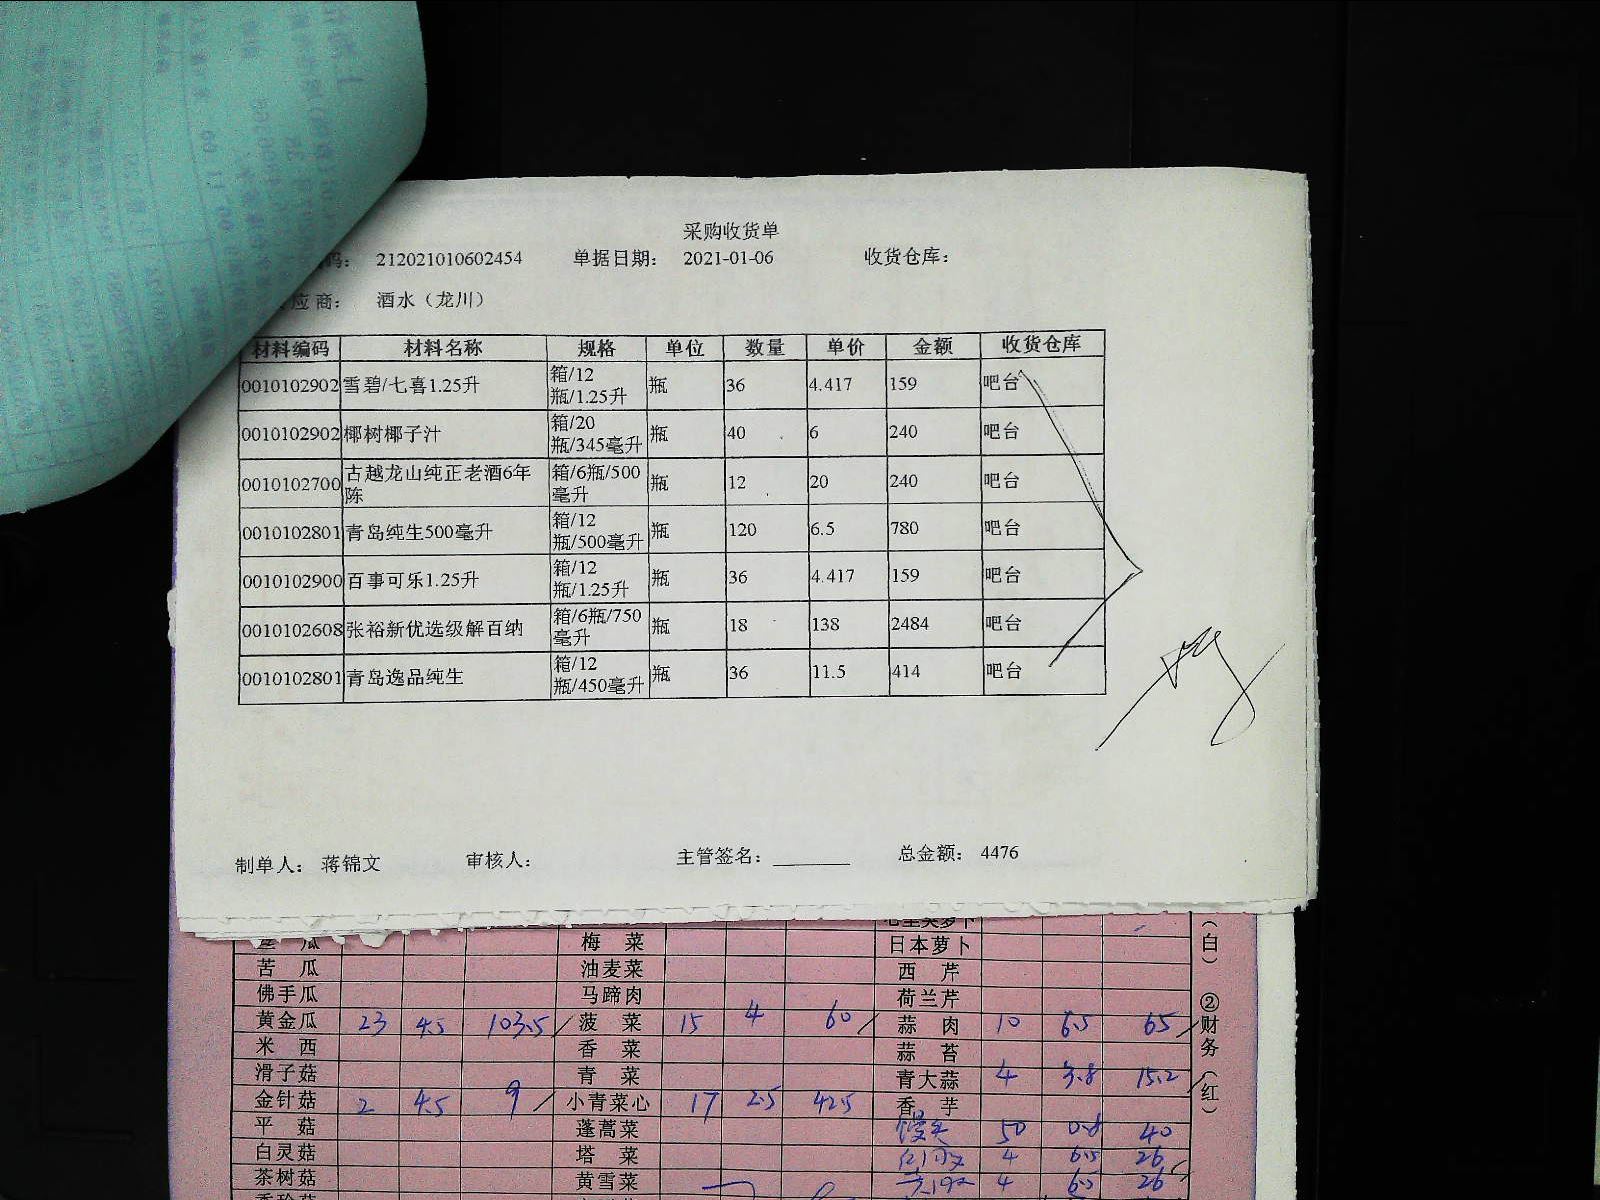 采购收货单
码： 212021010602454 单据日期： 2021-01-06 收货仓库：
应商： 酒水（龙川）
材料编码 材料名称 规格 单位 数量 单价 金额 收货仓库
0010102902 雪碧/七喜1.25升 箱/12瓶/1.25升 瓶 36 4.417 159 吧台
0010102902 椰树椰子汁 箱/20瓶/345毫升 瓶 40 6 240 吧台
0010102700 古越龙山纯正老酒6年陈 箱/6瓶/500毫升 瓶 12 20 240 吧台
0010102801 青岛纯生500毫升 箱/12瓶/500毫升 瓶 120 6.5 780 吧台
0010102900 百事可乐1.25升 箱/12瓶/1.25升 瓶 36 4.417 159 吧台
0010102608 张裕新优选级解百纳 箱/6瓶/750毫升 瓶 18 138 2484 吧台
0010102801 青岛逸品纯生 箱/12瓶/450毫升 瓶 36 11.5 414 吧台
制单人： 蒋锦文 审核人： 主管签名： 总金额： 4476
瓜 梅菜 日本萝卜
苦瓜 油麦菜 西芹
佛手瓜 马蹄肉 荷兰芹
黄金瓜 23 4.5 103.5 菠菜 15 4 60 蒜肉 10 6.5 65
米西 香菜 蒜苔
滑子菇 青菜 青大蒜 4 3.8 15.2
金针菇 2 4.5 9 小青菜心 17 2.5 42.5 香芋
平菇 蓬蒿菜 馒头 50 0.8 40
白灵菇 塔菜 4 6.5 26
茶树菇 黄雪菜 4 6.5 26
（白） ②财务（红）